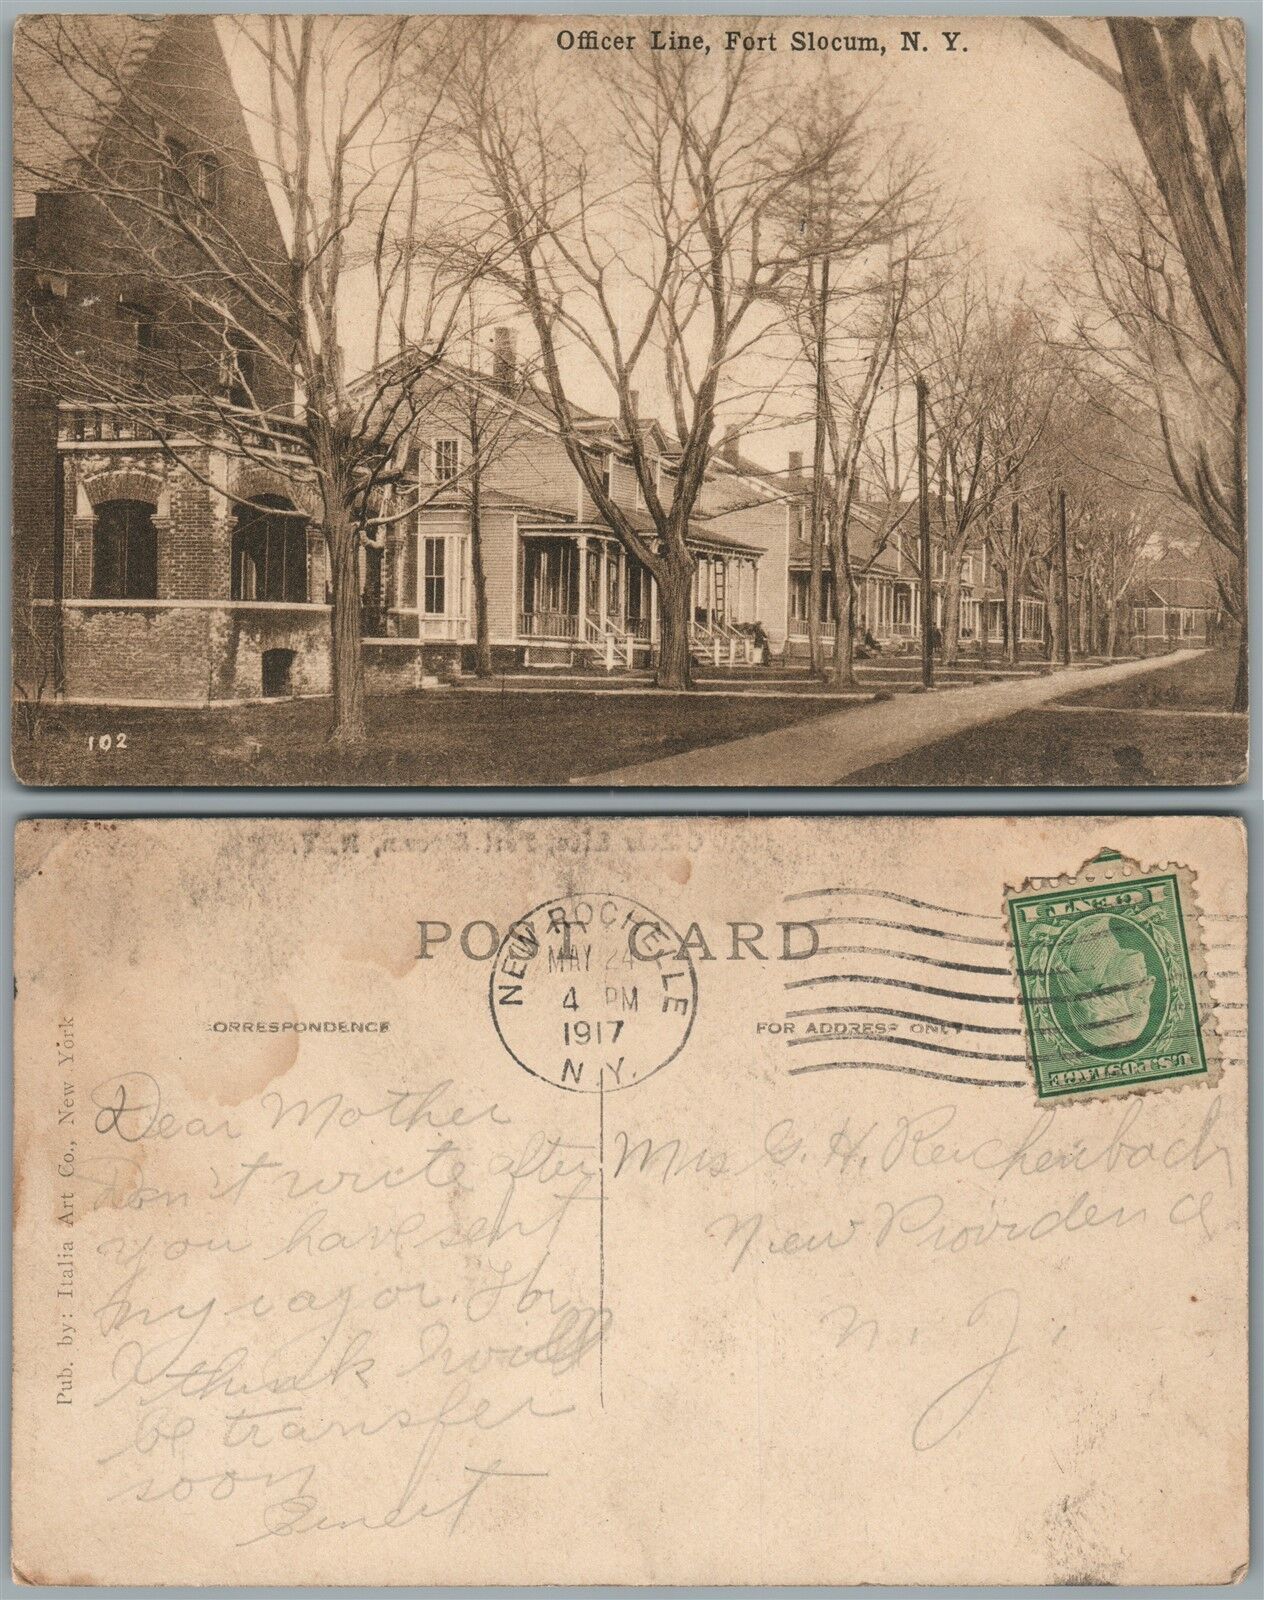 Officer Line, Fort Slocum, N. Y.
102
POST CARD
NEW ROCHELLE
MAY 24
4 PM
1917
N.Y.
CORRESPONDENCE
FOR ADDRESS ONLY
U.S. POSTAGE
1 CENT 1
Pub. by: Italia Art Co., New York
Dear Mother
Don't write after
you have sent
my razor. For
I think I will
be transfer
soon
Ernest
Mrs G. H. Reichenbach
New Providence
N. J.